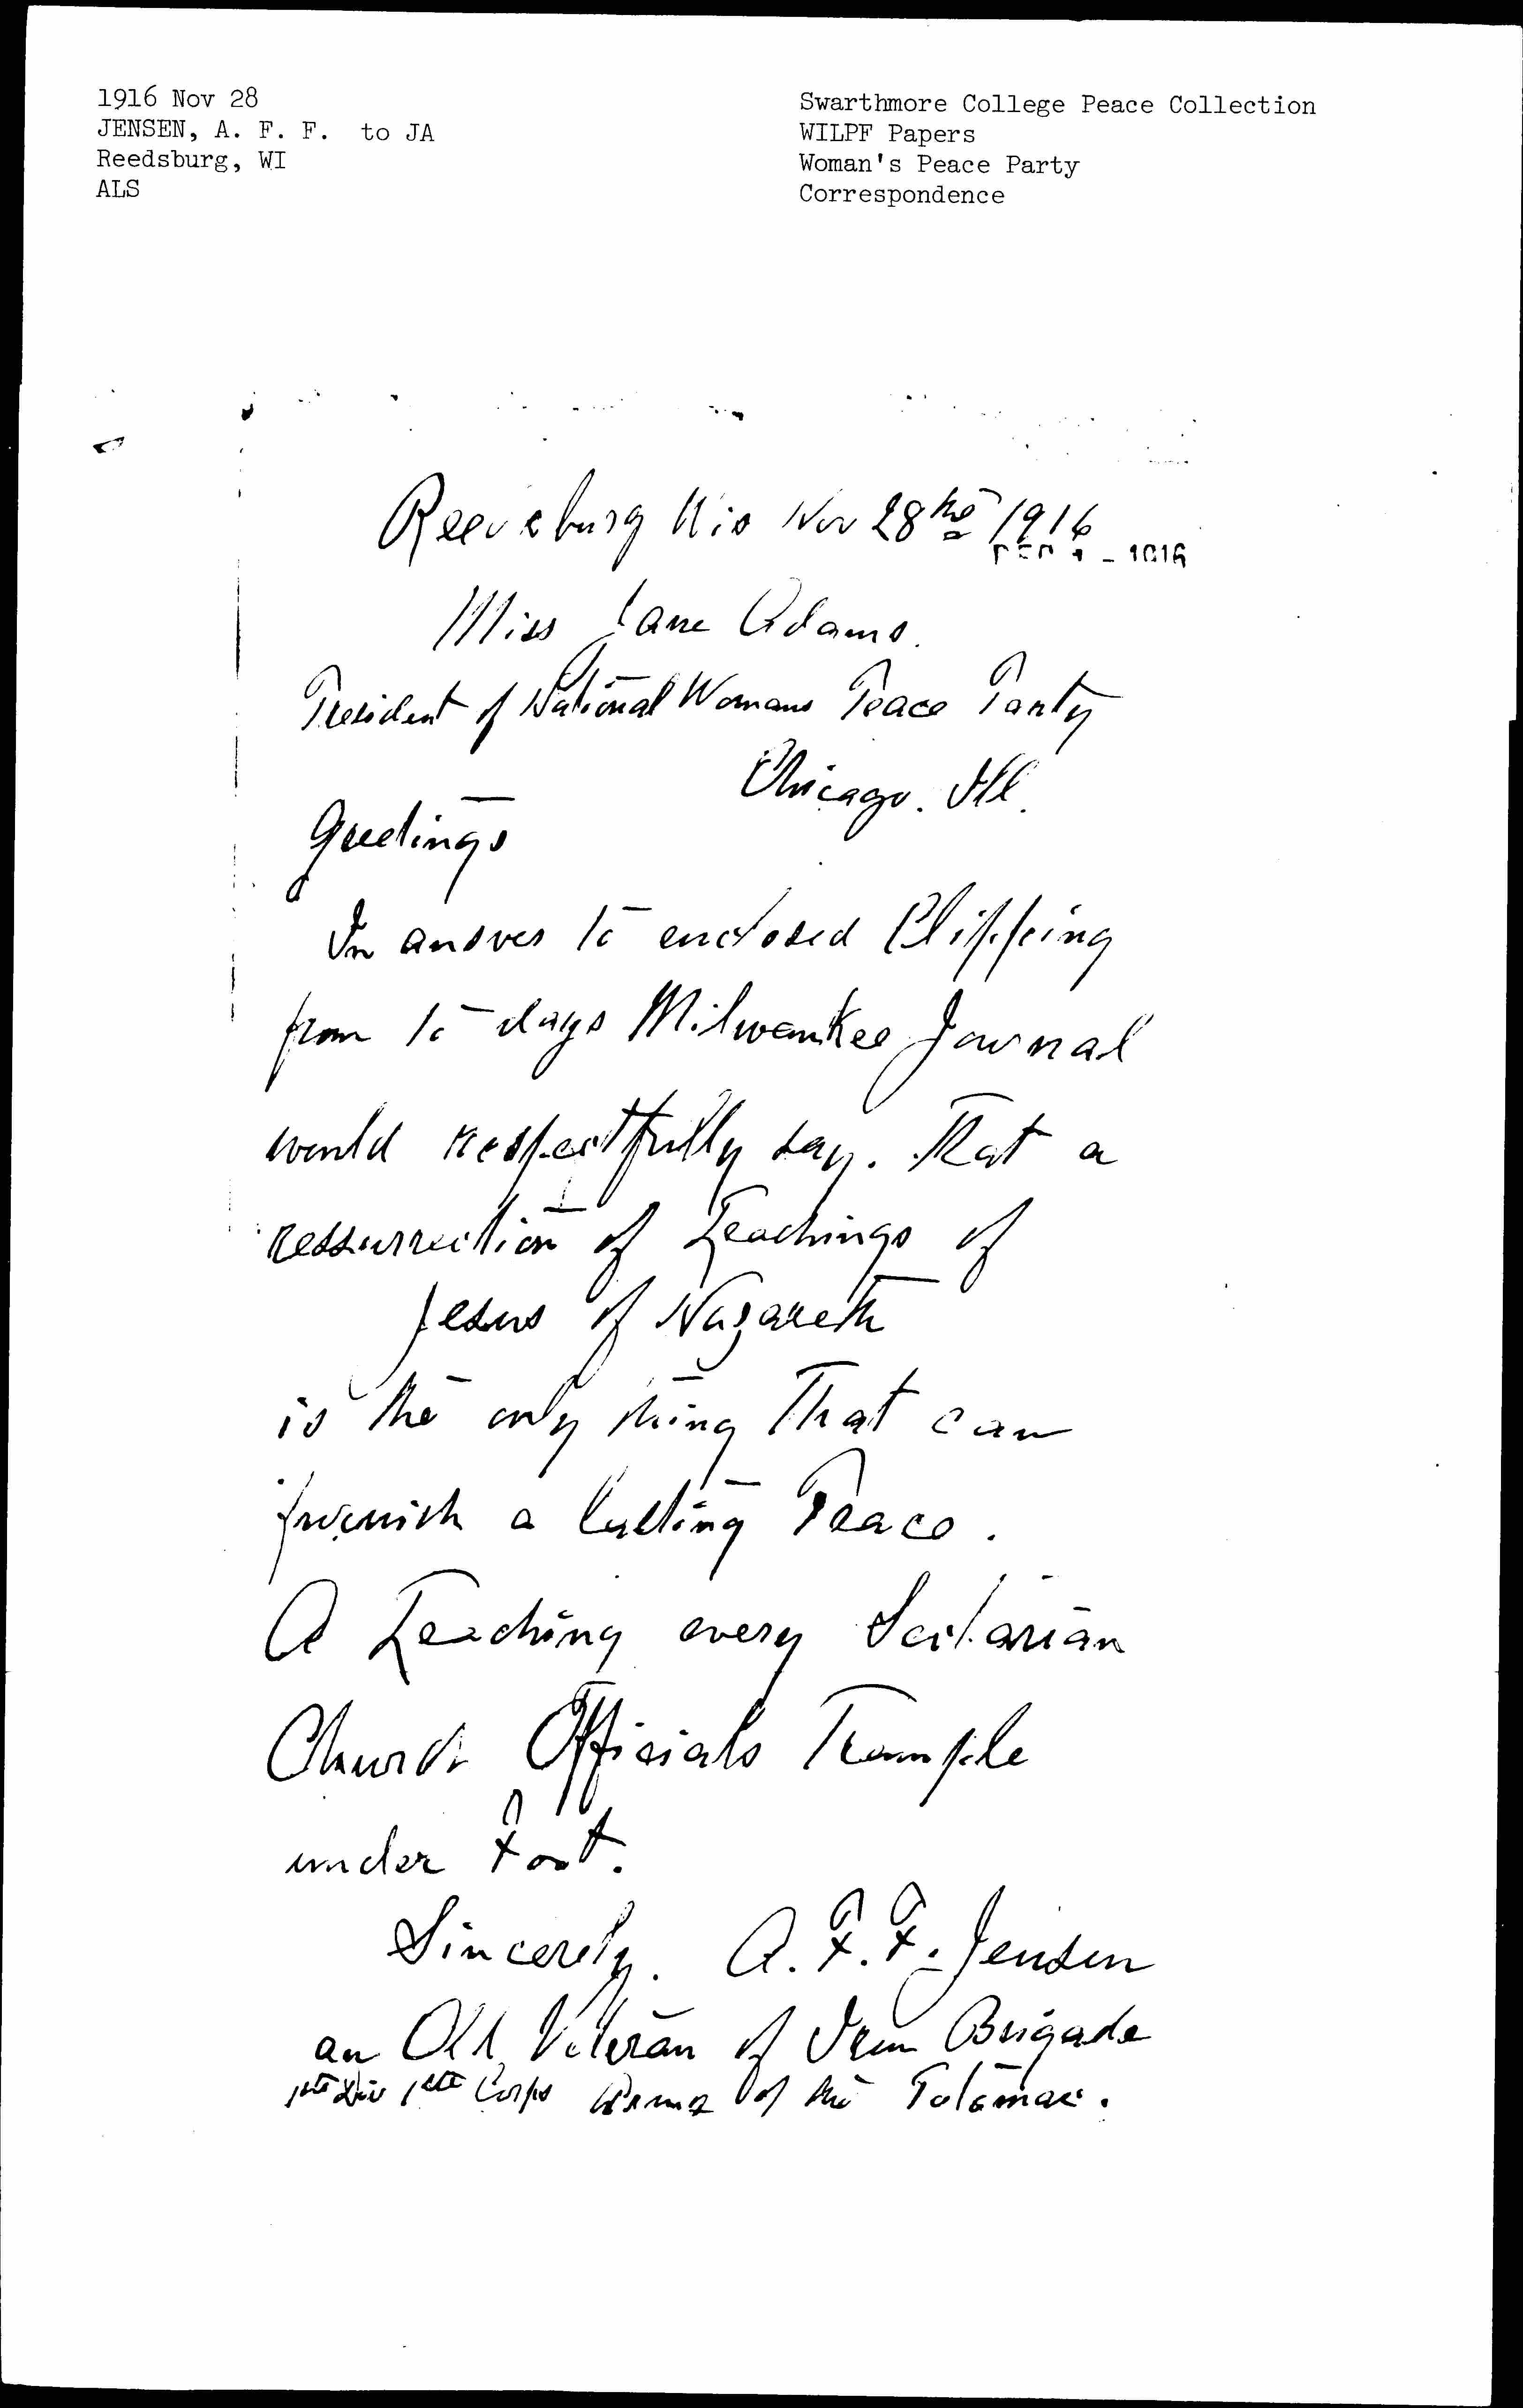 1916 Nov 28
JENSEN, A. F. F. to JA
Reedsburg, WI
ALS
Swarthmore College Peace Collection
WILPF Papers
Woman's Peace Party
Correspondence
Reedsburg Wis Nov 28th 1916
DEC 1 - 1916
Miss Jane Adams.
President of National Womans Peace Party
Chicago. Ill.
Greetings
In answer to enclosed Clipping
from to days Milwaukee Journal
would respectfully say. That a
ressurrection of Teachings of
Jesus of Nazareth
is the only thing That can
furnish a lasting Peace.
A Teaching every Sectarian
Church Officials Trample
under Foot.
Sincerely. A. F. F. Jensen
an Old Veteran of Iron Brigade
1st Div 1st Corps Army of the Potomac.